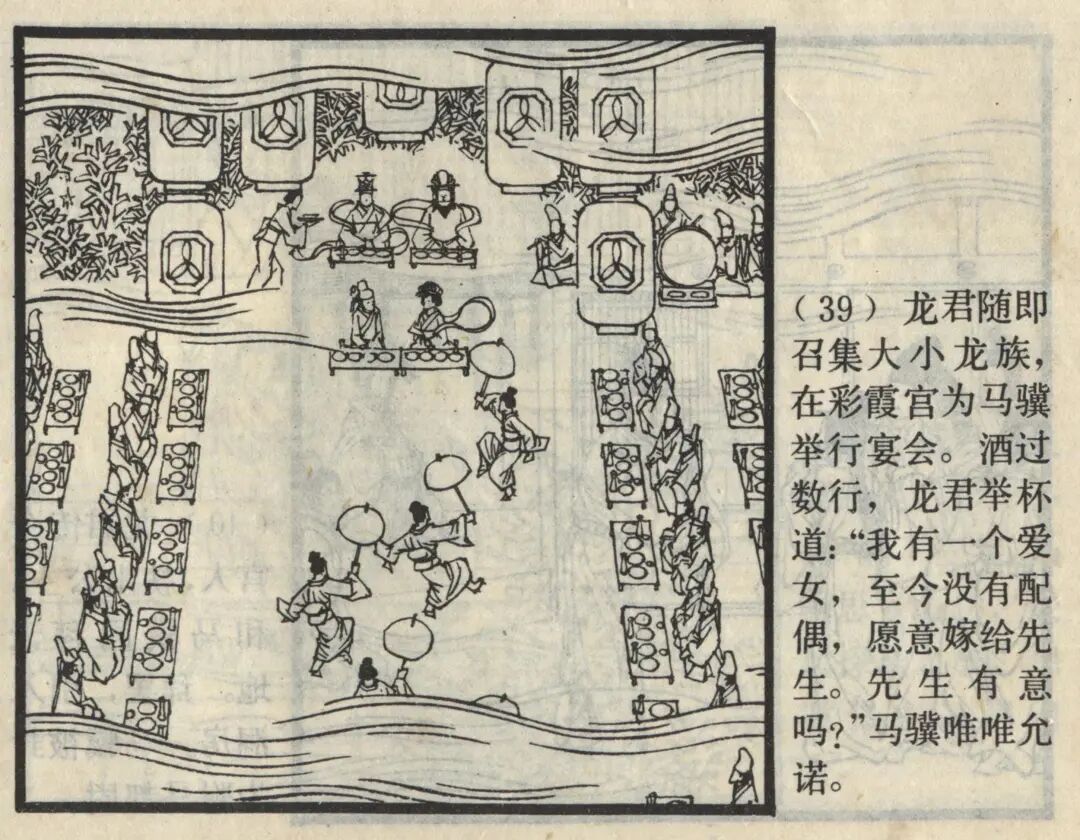 （39）龙君随即
召集大小龙族，
在彩霞宫为马骥
举行宴会。酒过
数行，龙君举杯
道：“我有一个爱
女，至今没有配
偶，愿意嫁给先
生。先生有意
吗？”马骥唯唯允
诺。